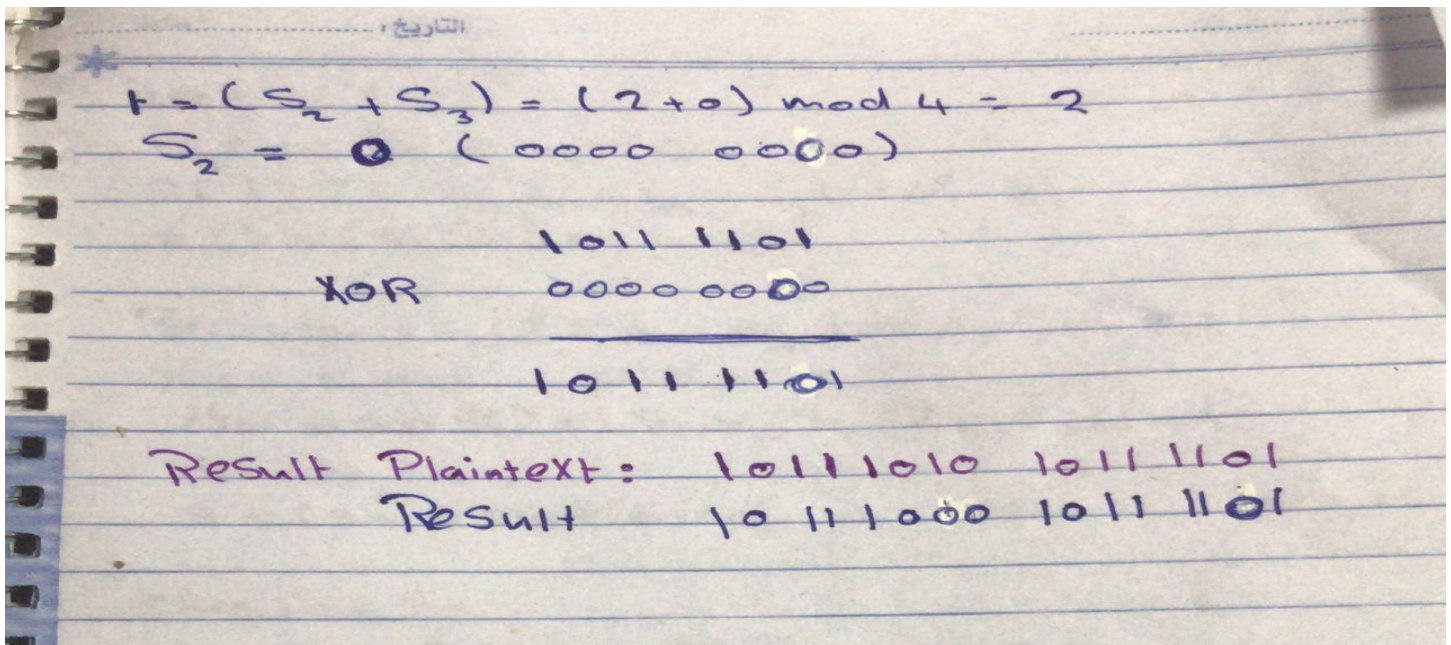 التاريخ :
t = (S₂ + S₃) = (2+0) mod 4 = 2
S₂ = 0 (0000 0000)
1011 1101
XOR 0000 0000
1011 1101
Result Plaintext: 10111010 1011 1101
Result 10111000 1011 1101